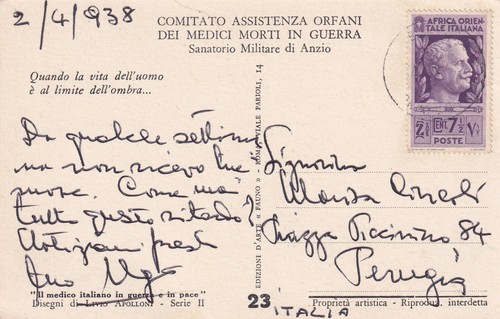 2/4/938
COMITATO ASSISTENZA ORFANI
DEI MEDICI MORTI IN GUERRA
Sanatorio Militare di Anzio
Quando la vita dell'uomo
è al limite dell'ombra...
Da qualche settima
na non ricevo tue
nuove. Come mai
tutto questo ritardo?
Notiziami presto
tuo Ugo
"Il medico italiano in guerra e in pace"
Disegni di LIVIO APOLLONI - Serie II
EDIZIONI D'ARTE «FAUNO» - ROMA, VIALE PARIOLI, 14
AFRICA ORIEN
TALE ITALIANA
CENT. 7½
POSTE
Signorina
Piazza Piccinino, 84
Perugia
23
ITALIA
Proprietà artistica - Riproduz. interdetta